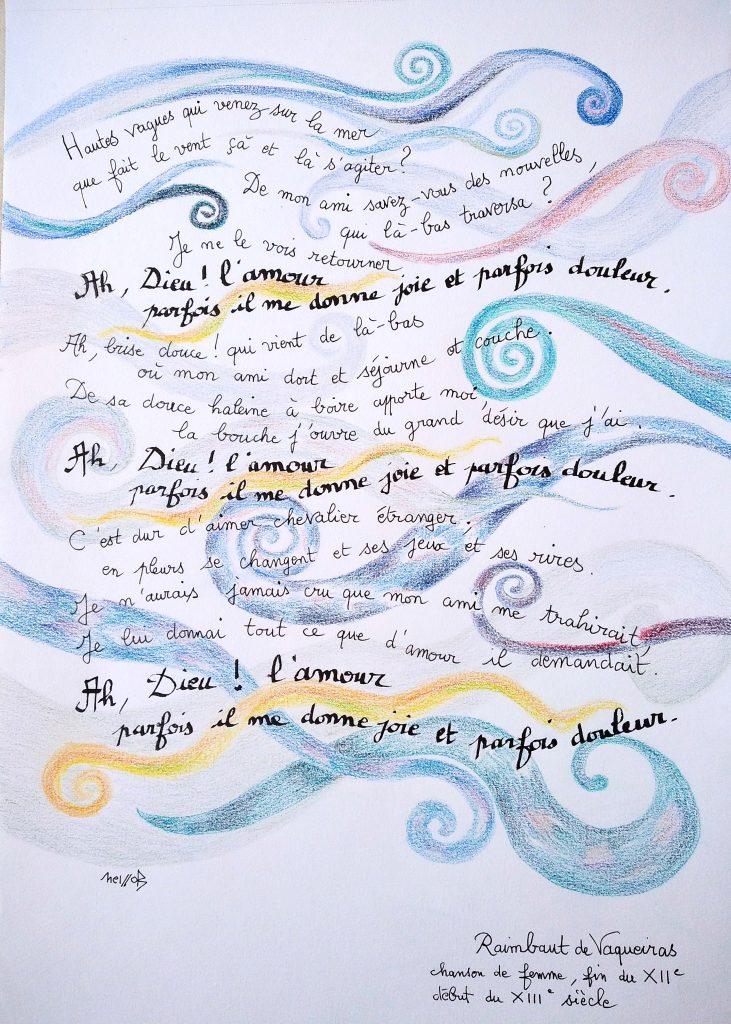 Hautes vagues qui venez sur la mer
que fait le vent çà et là s'agiter ?
De mon ami savez-vous des nouvelles,
qui là-bas traversa ?
Je ne le vois retourner.
Ah, Dieu ! l'amour
parfois il me donne joie et parfois douleur.
Ah, brise douce ! qui vient de là-bas
où mon ami dort et séjourne et couche.
De sa douce haleine à boire apporte moi,
la bouche j'ouvre du grand désir que j'ai.
Ah, Dieu ! l'amour
parfois il me donne joie et parfois douleur.
C'est dur d'aimer chevalier étranger.
en pleurs se changent et ses jeux et ses rires.
Je n'aurais jamais cru que mon ami me trahirait,
Je lui donnai tout ce que d'amour il demandait.
Ah, Dieu ! l'amour
parfois il me donne joie et parfois douleur.
Raimbaut de Vaqueiras
chanson de femme, fin du XIIe
début du XIIIe siècle